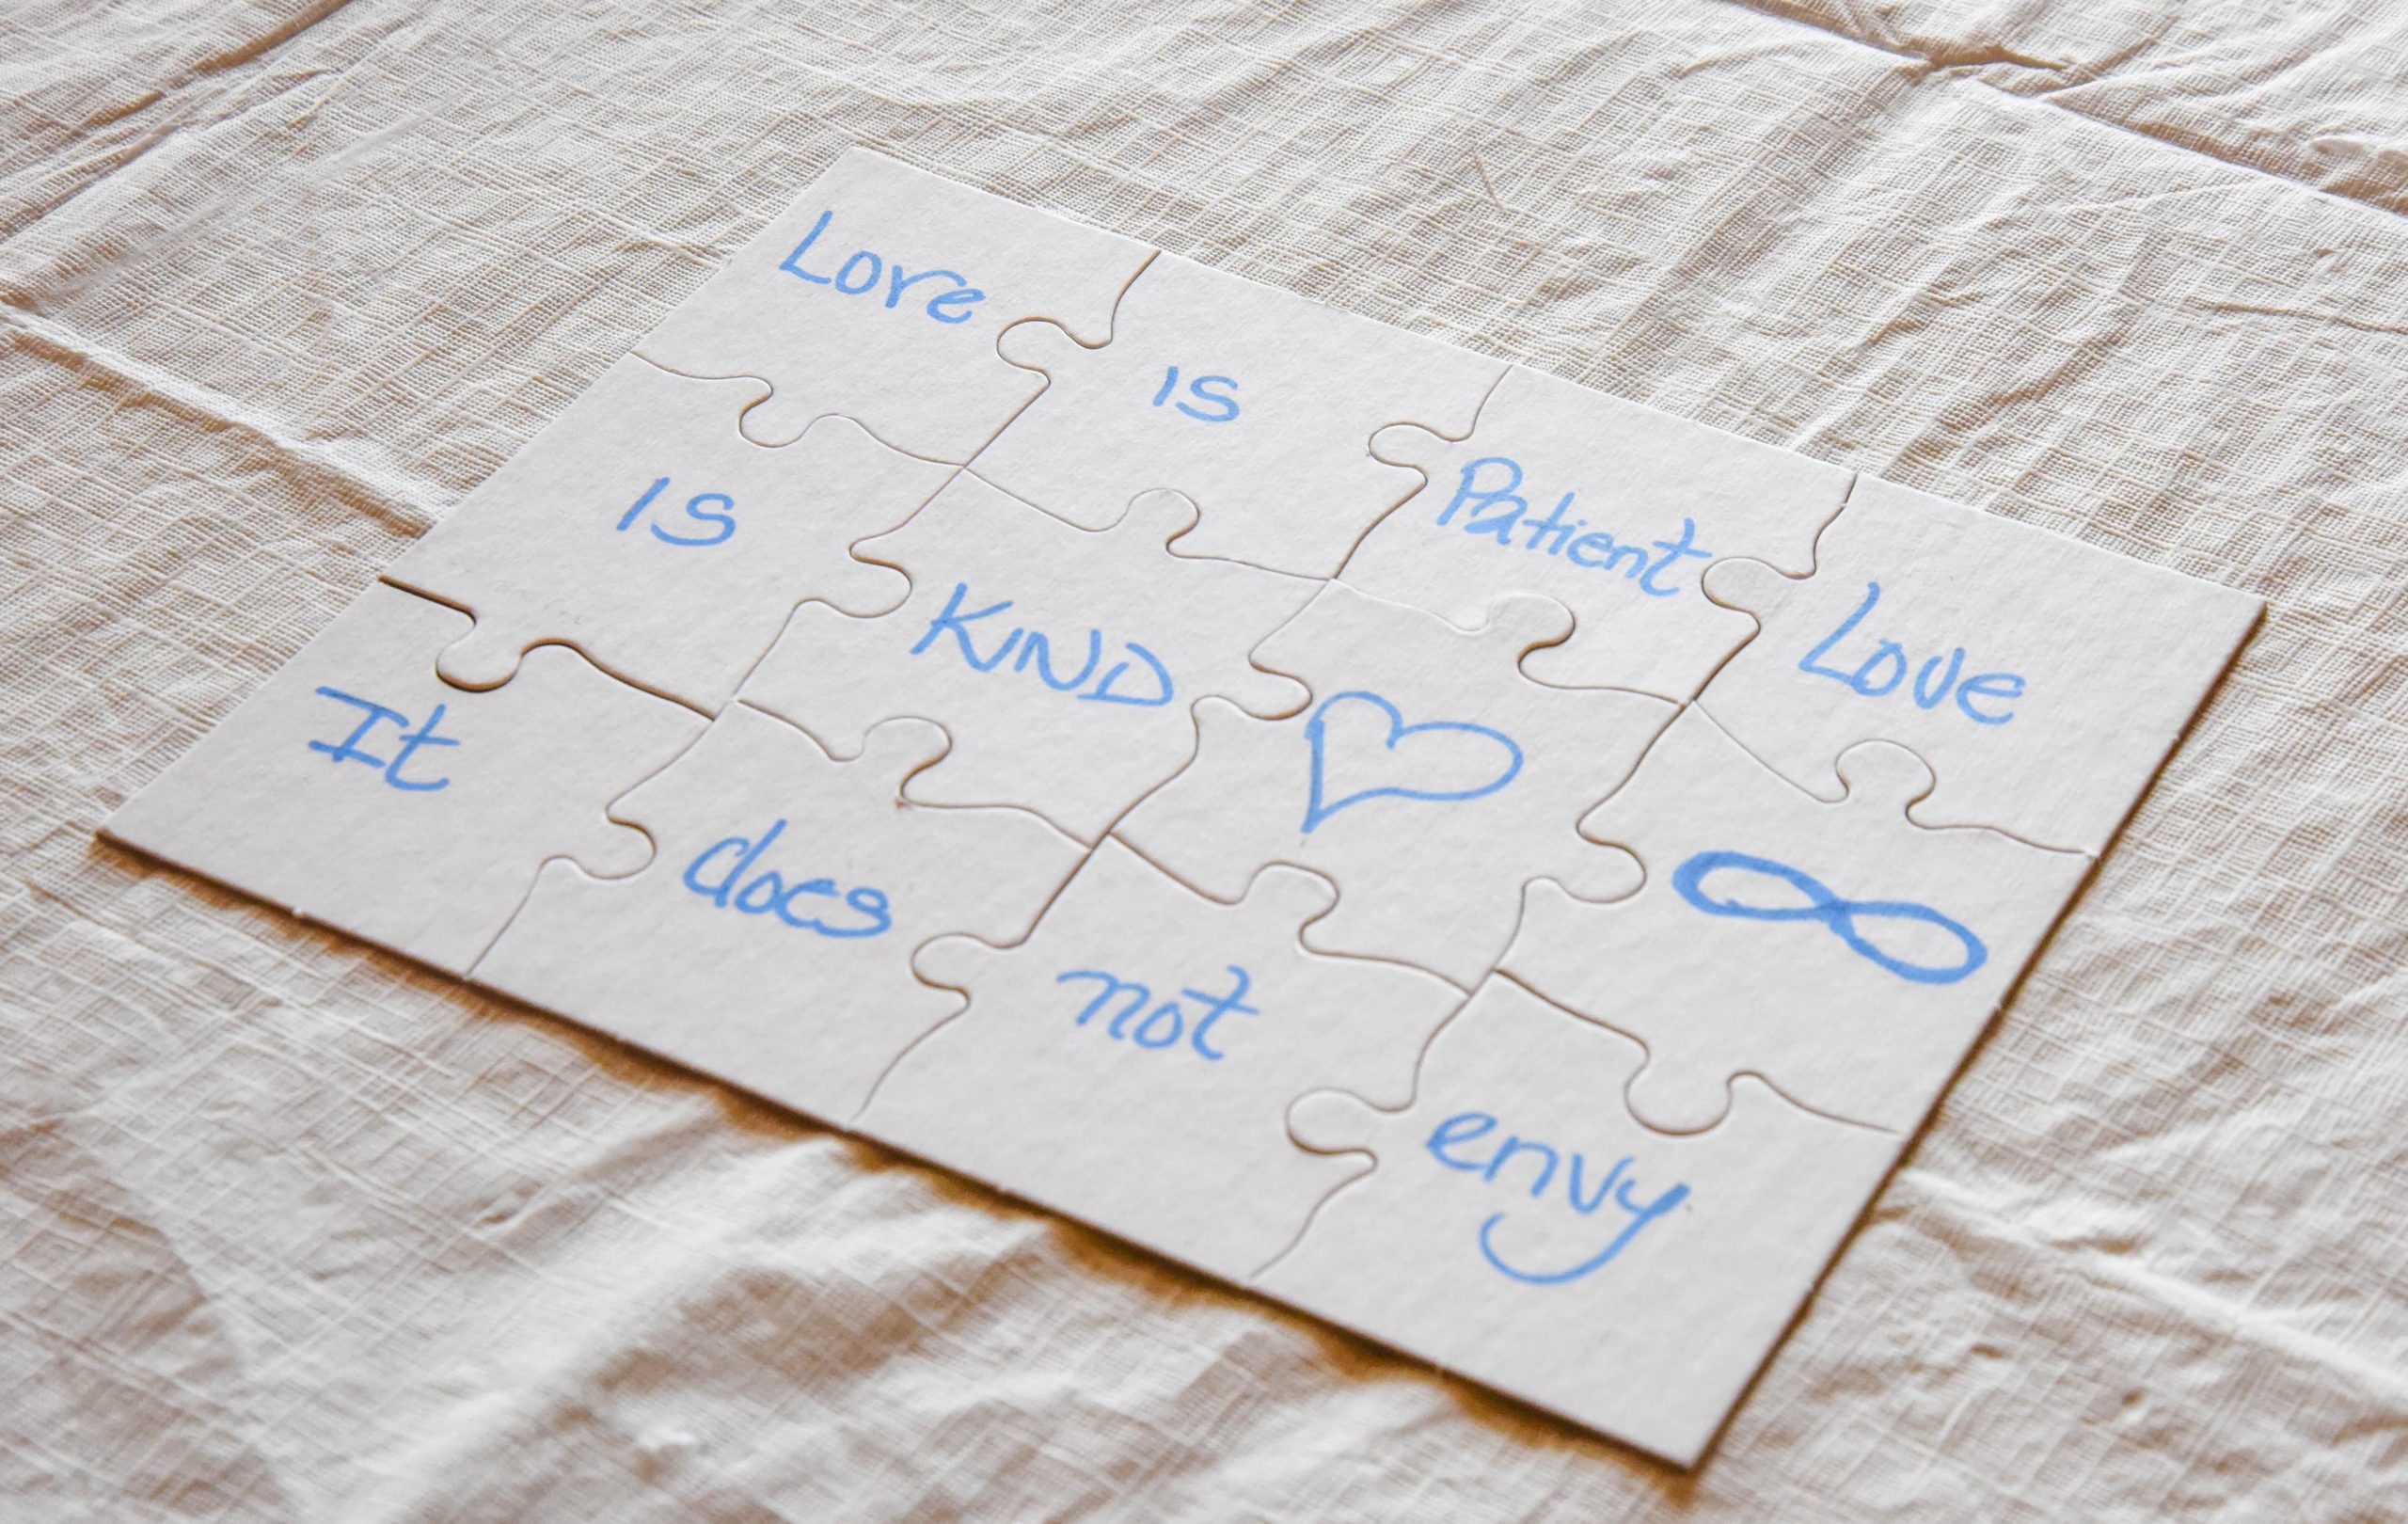 Love is Patient Love
is KIND ♡ ∞
It does not envy